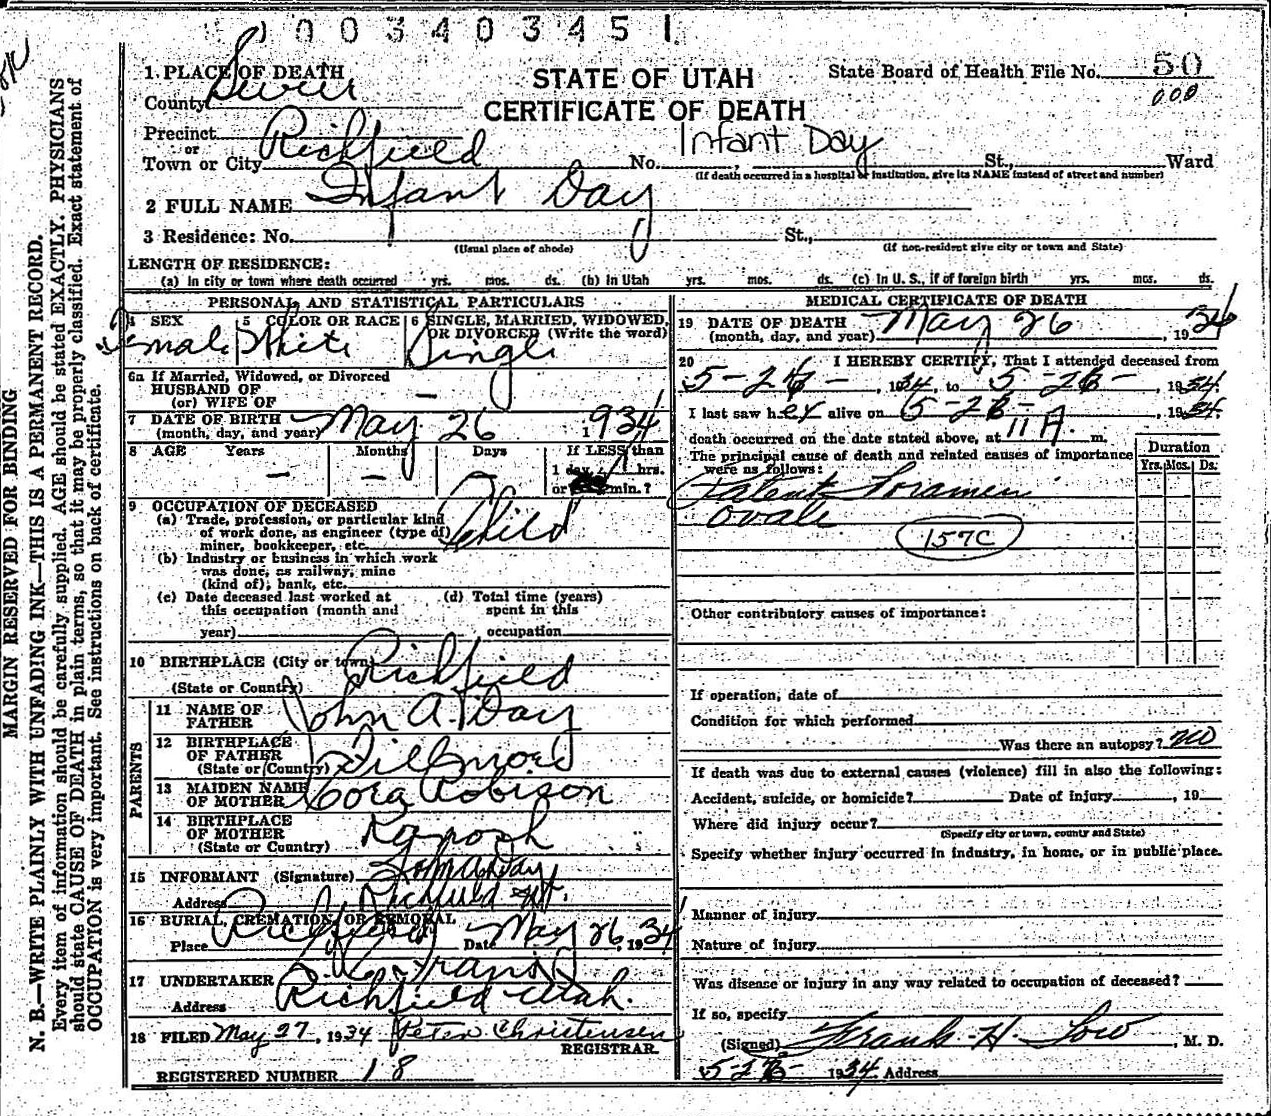 1003403451
1. PLACE OF DEATH
STATE OF UTAH
State Board of Health File No. 50
000
County Sevier
CERTIFICATE OF DEATH
Precinct
or
Town or City Richfield No. Infant Day, St., Ward
(If death occurred in a hospital or institution, give its NAME instead of street and number)
2 FULL NAME Infant Day
3 Residence: No. St.,
(Usual place of abode) (If non-resident give city or town and State)
LENGTH OF RESIDENCE:
(a) In city or town where death occurred yrs. mos. ds. (b) In Utah yrs. mos. ds. (c) In U. S., if of foreign birth yrs. mos. ds.
PERSONAL AND STATISTICAL PARTICULARS
4 SEX 5 COLOR OR RACE 6 SINGLE, MARRIED, WIDOWED, OR DIVORCED (Write the word)
Female White Single
6a If Married, Widowed, or Divorced
HUSBAND OF
(or) WIFE OF —
7 DATE OF BIRTH (month, day, and year) May 26 1934
8 AGE Years Months Days If LESS than
— — 1 day, 1 hrs.
or min.?
9 OCCUPATION OF DECEASED
(a) Trade, profession, or particular kind of work done, as engineer (type of) miner, bookkeeper, etc. Child
(b) Industry or business in which work was done, as railway, mine (kind of), bank, etc.
(c) Date deceased last worked at this occupation (month and year)
(d) Total time (years) spent in this occupation
10 BIRTHPLACE (City or town) Richfield
(State or Country)
PARENTS
11 NAME OF FATHER John A. Day
12 BIRTHPLACE OF FATHER (State or Country) Fillmore
13 MAIDEN NAME OF MOTHER Cora Robison
14 BIRTHPLACE OF MOTHER (State or Country) Kanosh
15 INFORMANT (Signature) John A Day
Address Richfield Ut.
16 BURIAL, CREMATION, OR REMOVAL
Place Richfield Date May 26, 1934
17 UNDERTAKER
Address Richfield Utah.
18 FILED May 27, 1934 Peter Christensen
REGISTRAR.
REGISTERED NUMBER 18
MEDICAL CERTIFICATE OF DEATH
19 DATE OF DEATH (month, day, and year) May 26, 1934
20 I HEREBY CERTIFY, That I attended deceased from
5-26-, 1934, to 5-26-, 1934.
I last saw her alive on 5-26-, 1934,
death occurred on the date stated above, at 11 A. m.
The principal cause of death and related causes of importance were as follows:
Duration
Yrs. Mos. Ds.
Patent Foramen
Ovale
157C
Other contributory causes of importance:
If operation, date of
Condition for which performed
Was there an autopsy? no
If death was due to external causes (violence) fill in also the following:
Accident, suicide, or homicide? Date of injury, 19
Where did injury occur?
(Specify city or town, county and State)
Specify whether injury occurred in industry, in home, or in public place.
Manner of injury
Nature of injury
Was disease or injury in any way related to occupation of deceased?
If so, specify
(Signed) Frank H. Low, M. D.
5-26- 1934 Address
MARGIN RESERVED FOR BINDING
N. B.—WRITE PLAINLY WITH UNFADING INK—THIS IS A PERMANENT RECORD.
Every item of information should be carefully supplied. AGE should be stated EXACTLY. PHYSICIANS
should state CAUSE OF DEATH in plain terms, so that it may be properly classified. Exact statement of
OCCUPATION is very important. See instructions on back of certificate.